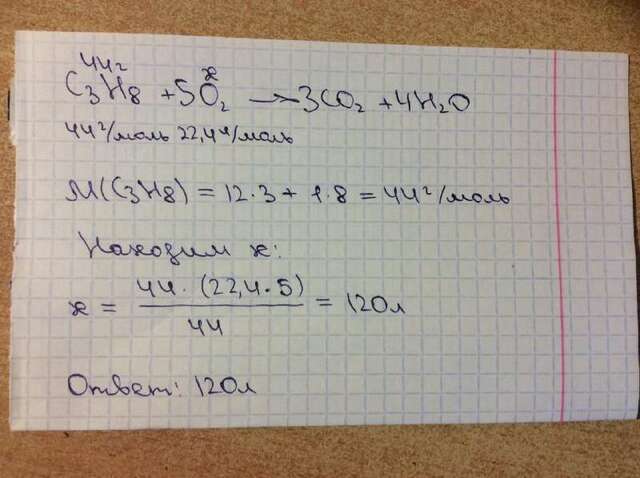 44г x
C₃H₈ + 5O₂ → 3CO₂ + 4H₂O
44г/моль 22,4л/моль
M(C₃H₈) = 12·3 + 1·8 = 44г/моль
Находим x:
x = 44·(22,4·5) / 44 = 120л
Ответ: 120л